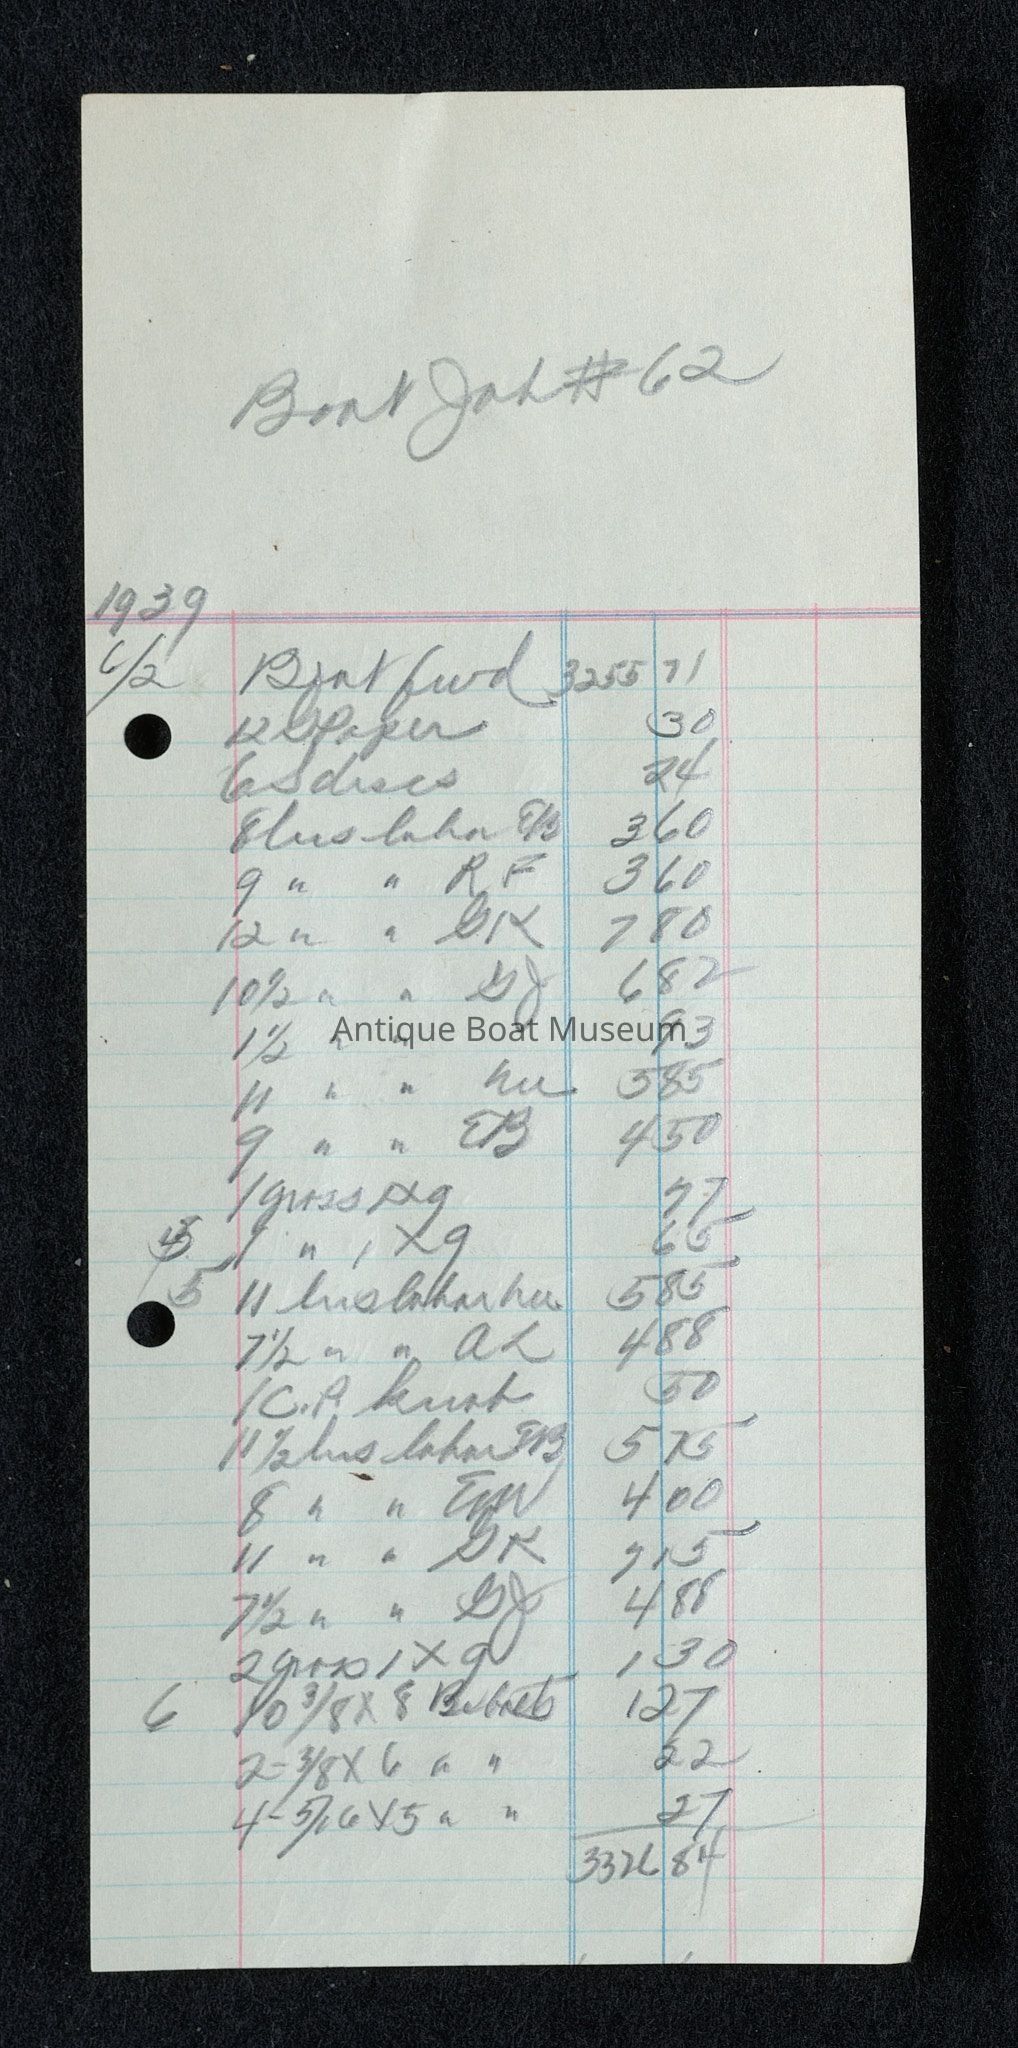 Boat Job # 62
1939
6/2 Brot fwd 3255 71
12 S Paper 30
6 S discs 24
8 hrs labor EB 3 60
9 " " R F 3 60
12 " " GK 7 80
10 1/2 " " GJ 6 82
1 1/2 " " 93
Antique Boat Museum
11 " " 5 85
9 " " EB 4 50
1 gross 1 X 9 77
1 " 1 X 9 65
5 11 hrs labor 5 85
7 1/2 " " A L 4 88
1 C.P. knob 50
11 1/2 hrs labor EB 5 75
8 " " 4 00
11 " " GK 7 15
7 1/2 " " GJ 4 88
2 gross 1 X 9 1 30
6 10 3/8 X 8 1 27
2 - 3/8 X 6 " " 22
4 - 5/16 X 5 " " 27
3326 84